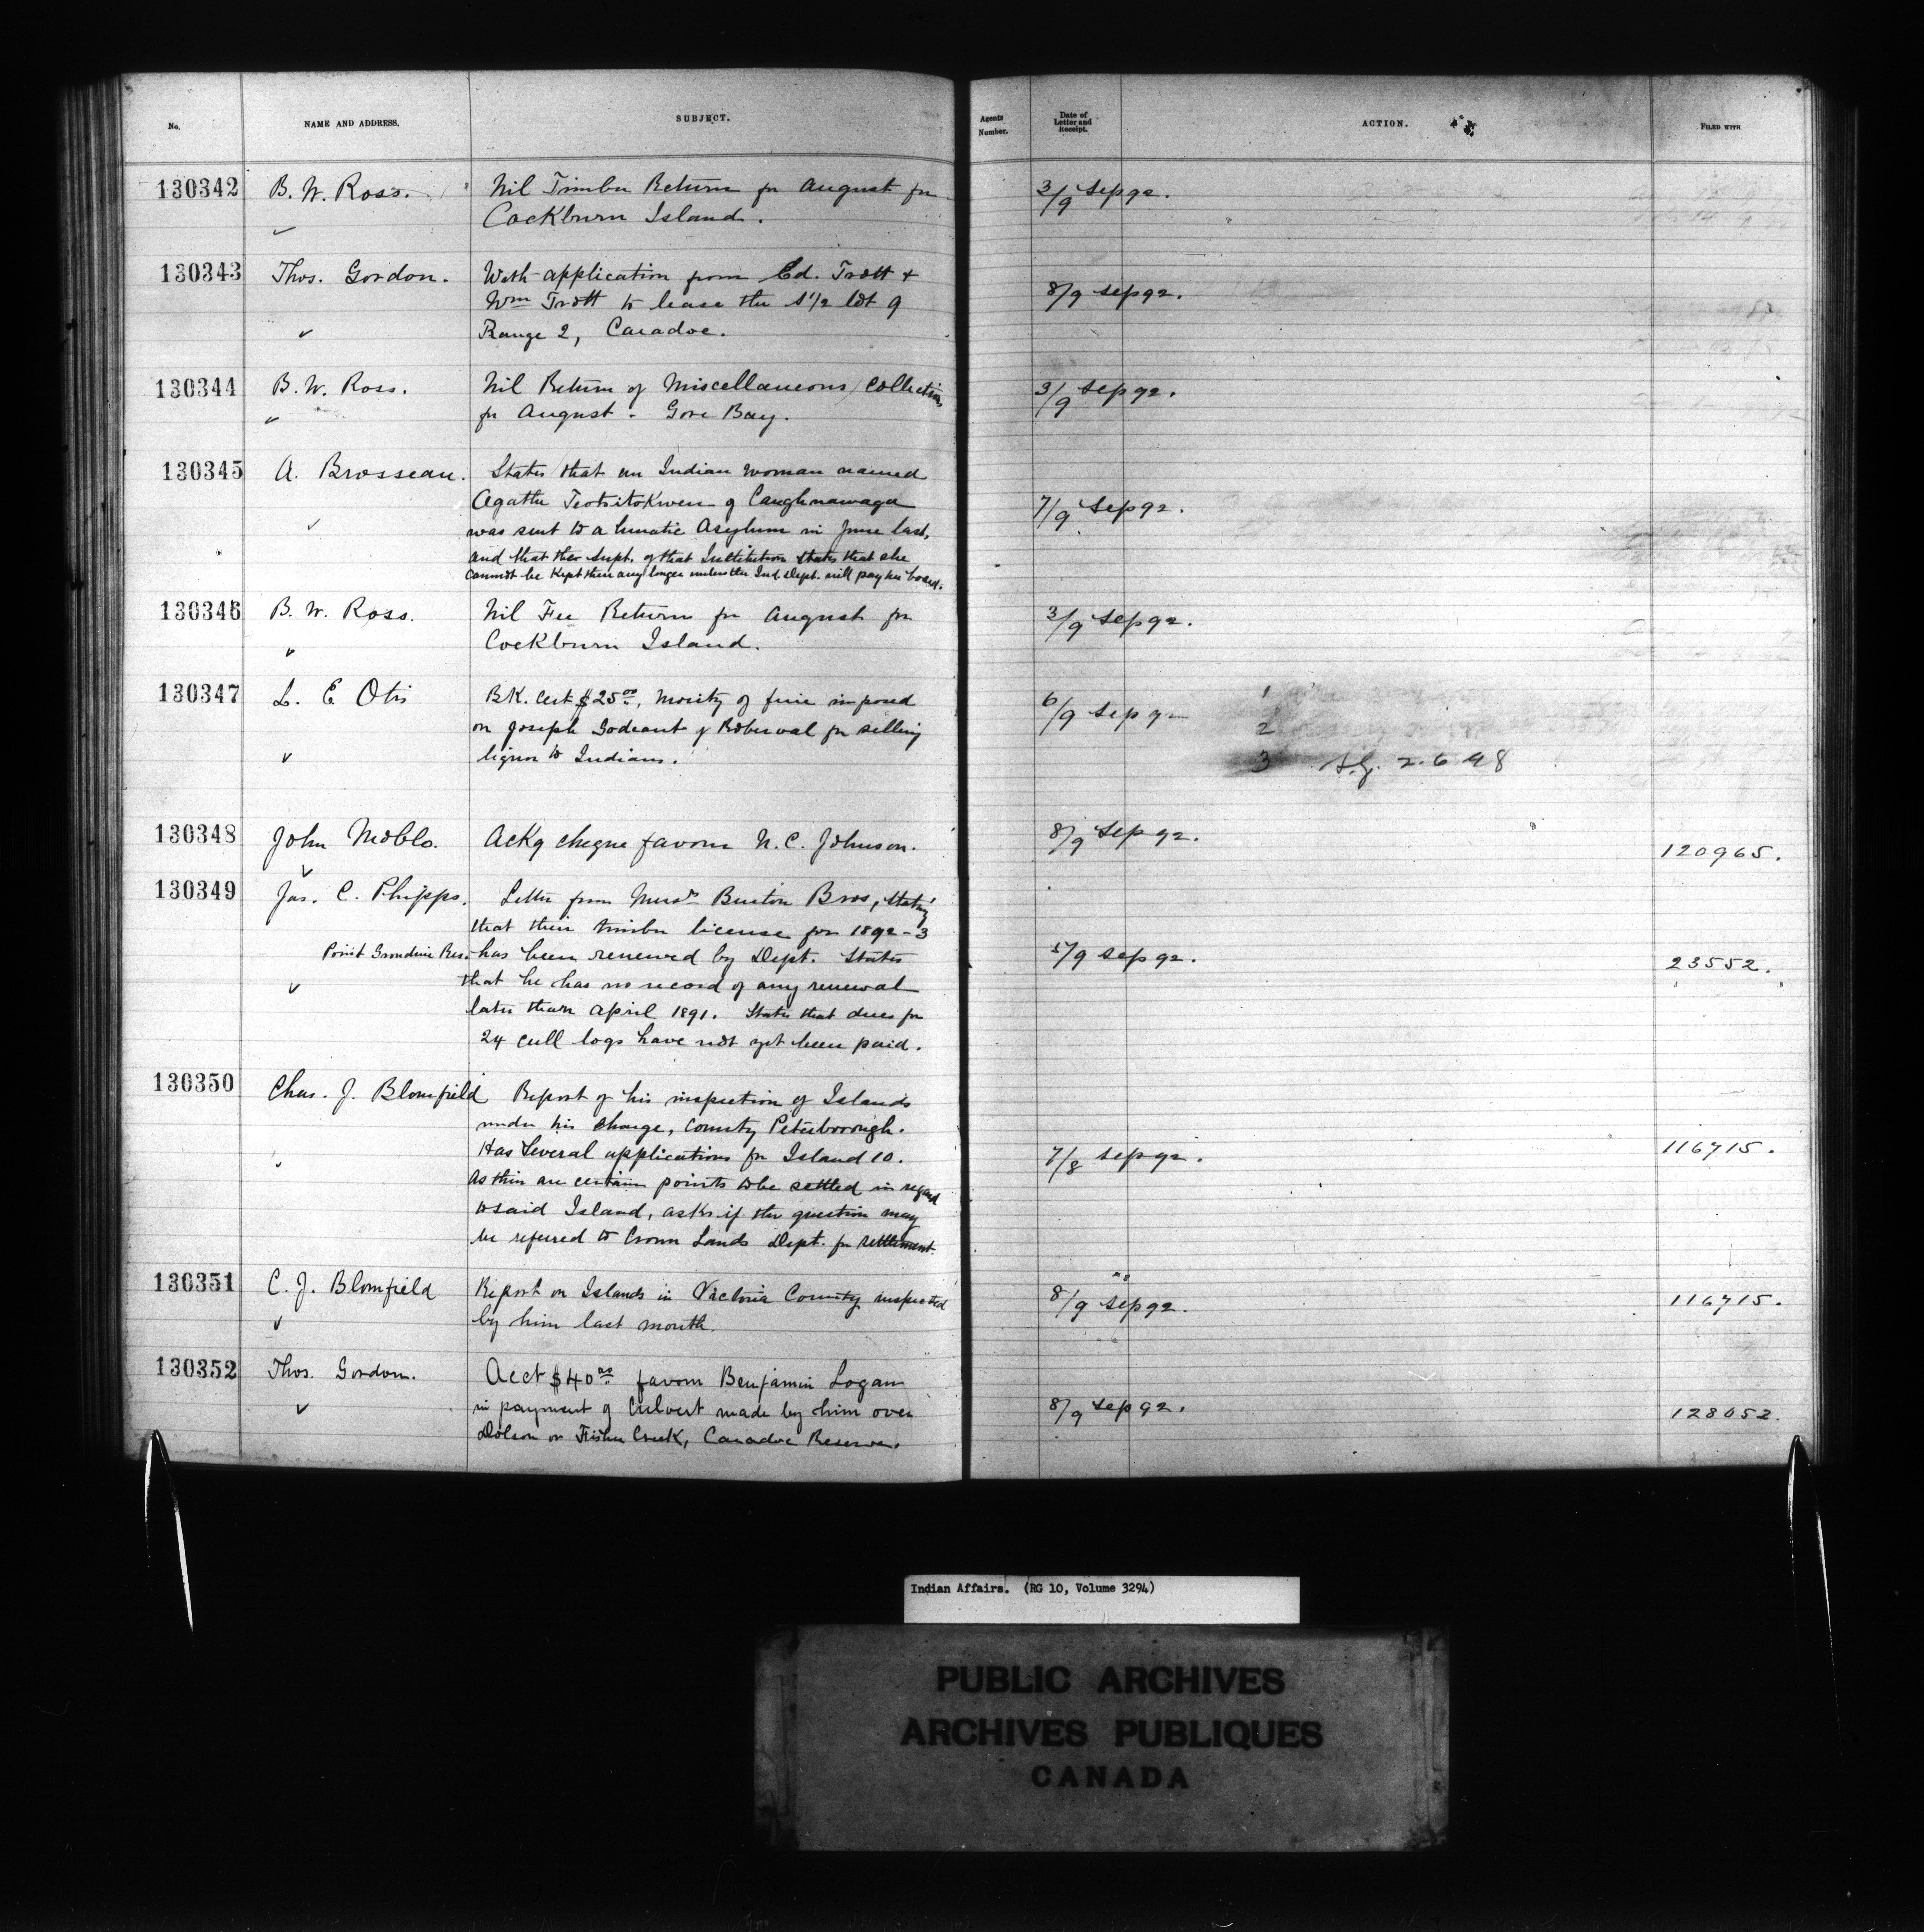 No. NAME AND ADDRESS. SUBJECT. Agents Number. Date of Letter and Receipt. ACTION. FILED WITH
130342 B. W. Ross. Nil Timber Return for August for 3/9 Sep 92.
Cockburn Island.
130343 Thos. Gordon. With application from Ed. Trott + 8/9 Sep 92.
Wm Trott to lease the S 1/2 lot 9
Range 2, Caradoc.
130344 B. W. Ross. Nil Return of Miscellaneous Collections 3/9 Sep 92.
for August. Gore Bay.
130345 A. Brosseau. States that an Indian woman named
Agathe Teotsitokwen of Caughnawaga 7/9 Sep 92.
was sent to a lunatic Asylum in June last,
and that the Supt. of that Institution states that she
cannot be kept there any longer unless the Ind. Dept. will pay her board.
130346 B. W. Ross. Nil Fee Return for August for 3/9 Sep 92.
Cockburn Island.
130347 L. E. Otis BK. Cert $25 00, Moiety of fine imposed 6/9 Sep 92 1
on Joseph Godeaut of Roberval for selling 2
liquor to Indians. 3 2.6.98
130348 John Noble. Ackg cheque favour N. C. Johnson. 8/9 Sep 92. 120965.
130349 Jas. C. Phipps. Letter from Messrs Burton Bros, stating
that their timber license for 1892-3
Point Grondine Res. has been renewed by Dept. States 5/9 Sep 92. 23552.
that he has no record of any renewal
later than April 1891. States that dues for
24 cull logs have not yet been paid.
130350 Chas. J. Blomfield Report of his inspection of Islands
under his charge, County Peterborough.
Has Several applications for Island 10. 7/8 Sep 92. 116715.
As there are certain points to be settled in regard
to said Island, asks if the question may
be referred to Crown Lands Dept. for settlement.
130351 C. J. Blomfield Report on Islands in Victoria County inspected 8/9 Sep 92. 116715.
by him last month.
130352 Thos. Gordon. Acct $40 00 favour Benjamin Logan
in payment of Culvert made by him over 8/9 Sep 92. 128052.
Dolson or Fisher Creek, Caradoc Reserve.
Indian Affairs. (RG 10, Volume 3294)
PUBLIC ARCHIVES
ARCHIVES PUBLIQUES
CANADA